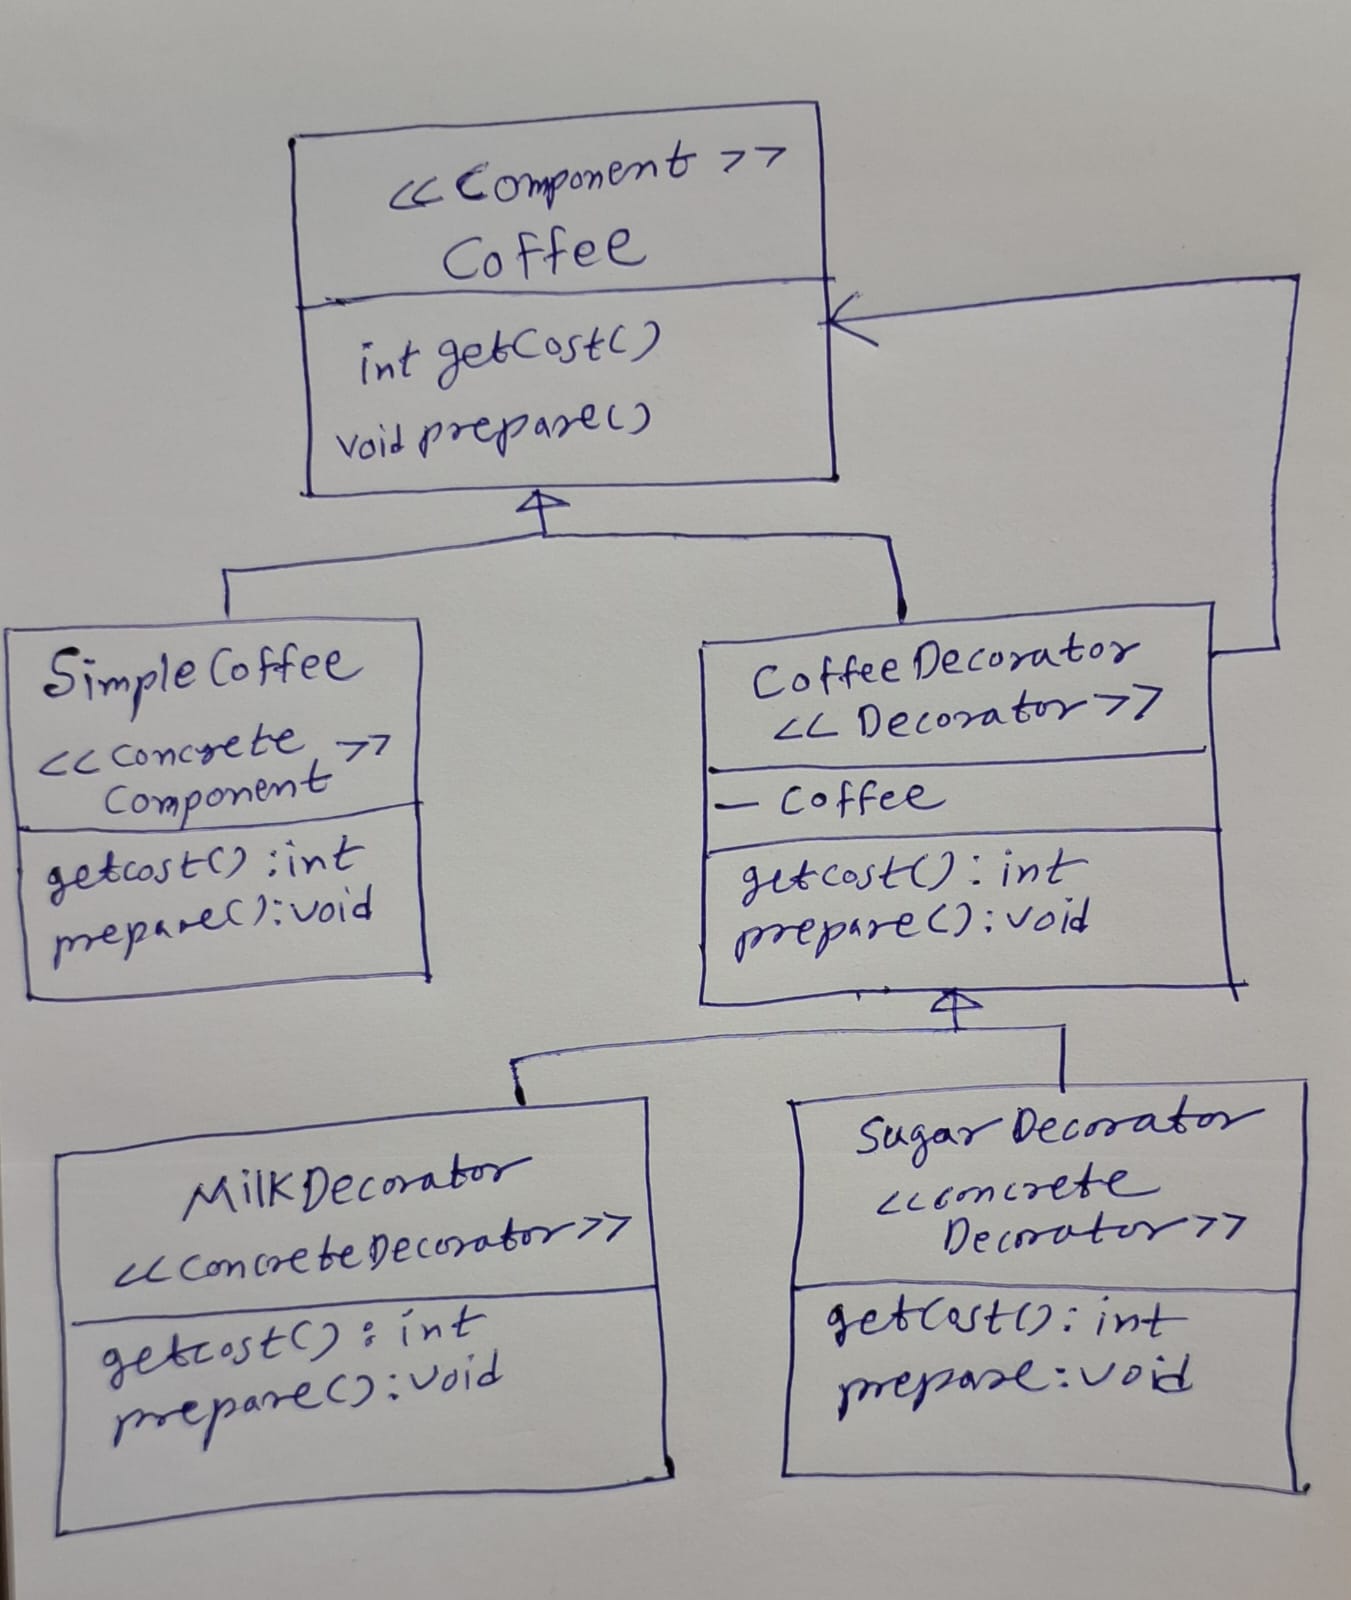 <<Component>>
Coffee
int getCost()
void prepare()
SimpleCoffee
<<Concrete
Component>>
getcost():int
prepare():void
CoffeeDecorator
<<Decorator>>
- Coffee
getcost():int
prepare():void
MilkDecorator
<<ConcreteDecorator>>
getcost():int
prepare():void
SugarDecorator
<<concrete
Decorator>>
getCost():int
prepare:void